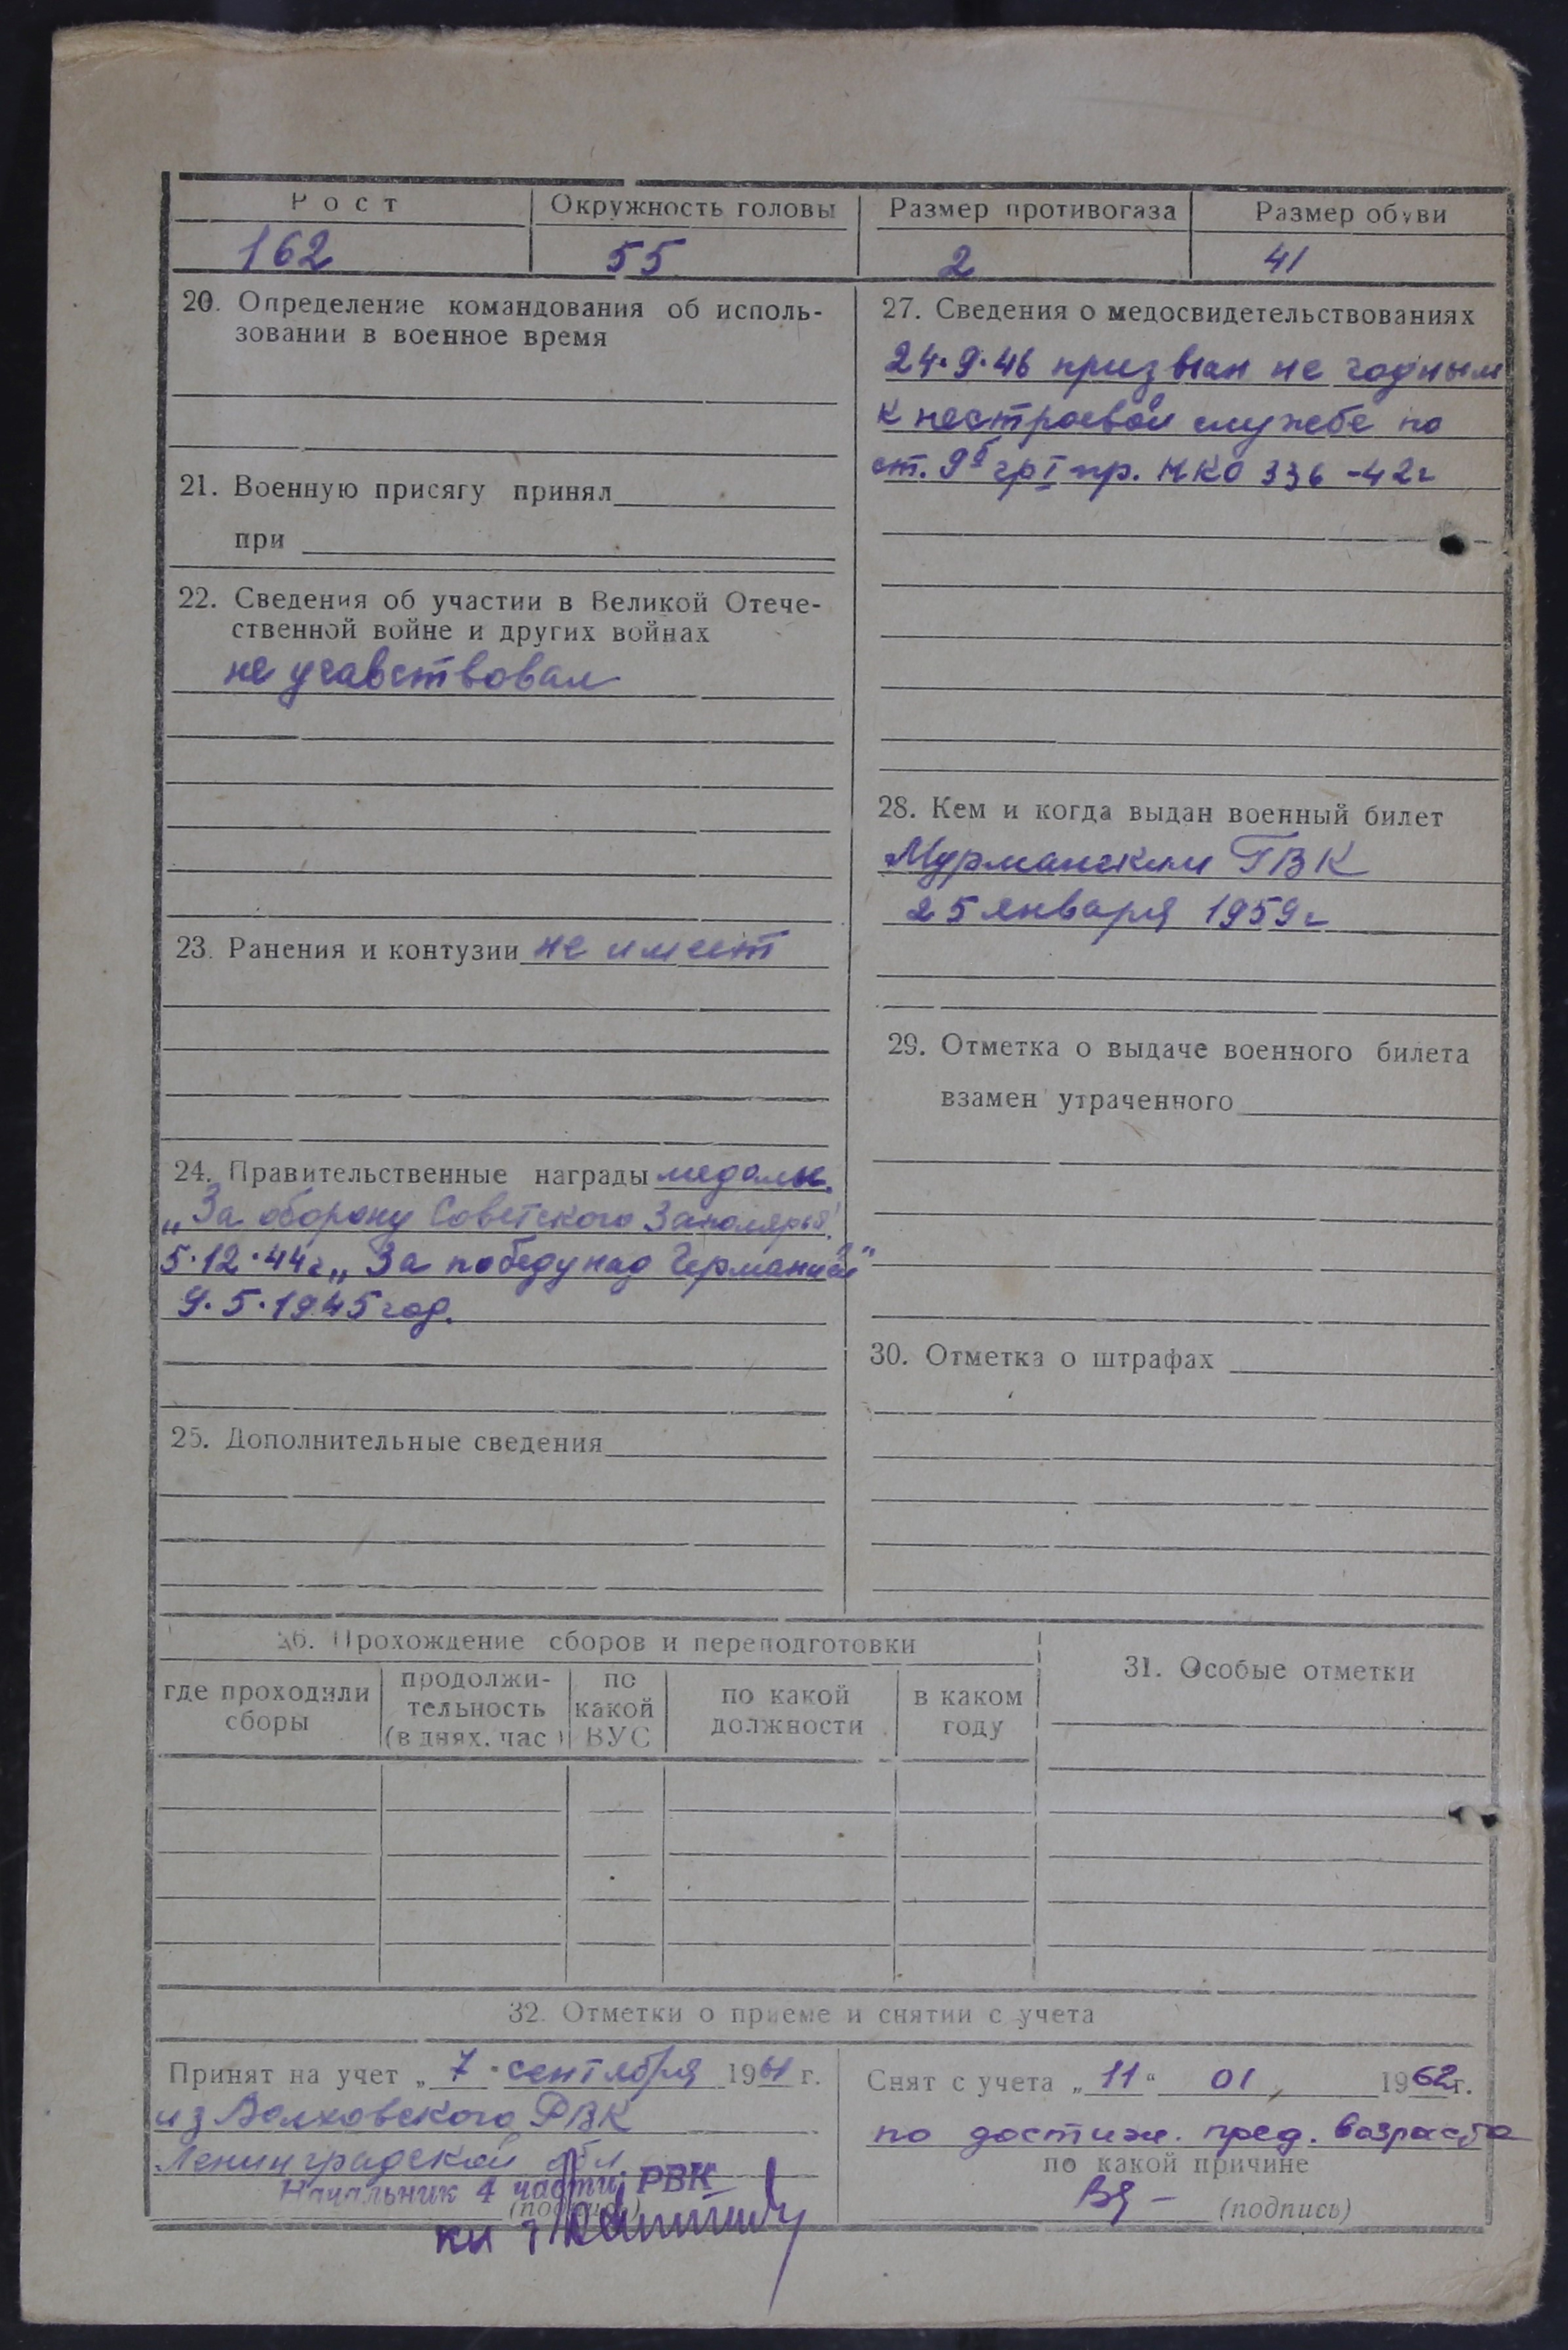 Рост Окружность головы Размер противогаза Размер обуви
162 55 2 41
20. Определение командования об исполь-
зовании в военное время
21. Военную присягу принял
при
22. Сведения об участии в Великой Отече-
ственной войне и других войнах
не учавствовал
23. Ранения и контузии не имеет
24. Правительственные награды медали.
„За оборону Советского Заполярья"
5.12.44г „За победу над Германией"
9.5.1945 год.
25. Дополнительные сведения
27. Сведения о медосвидетельствованиях
24.9.46 призван не годным
к нестроевой службе по
ст. 9б гр I пр. НКО 336-42г
28. Кем и когда выдан военный билет
Мурманским ГВК
25 января 1959г
29. Отметка о выдаче военного билета
взамен утраченного
30. Отметка о штрафах
26. Прохождение сборов и переподготовки
где проходили
сборы
продолжи-
тельность
(в днях. час)
по
какой
ВУС
по какой
должности
в каком
году
31. Особые отметки
32. Отметки о приеме и снятии с учета
Принят на учет „7" сентября 1961 г.
из Волховского РВК
Ленинградской обл.
Начальник 4 части РВК
(подпись)
Снят с учета „11" 01, 1962г.
по достиж. пред. возраста
по какой причине
(подпись)